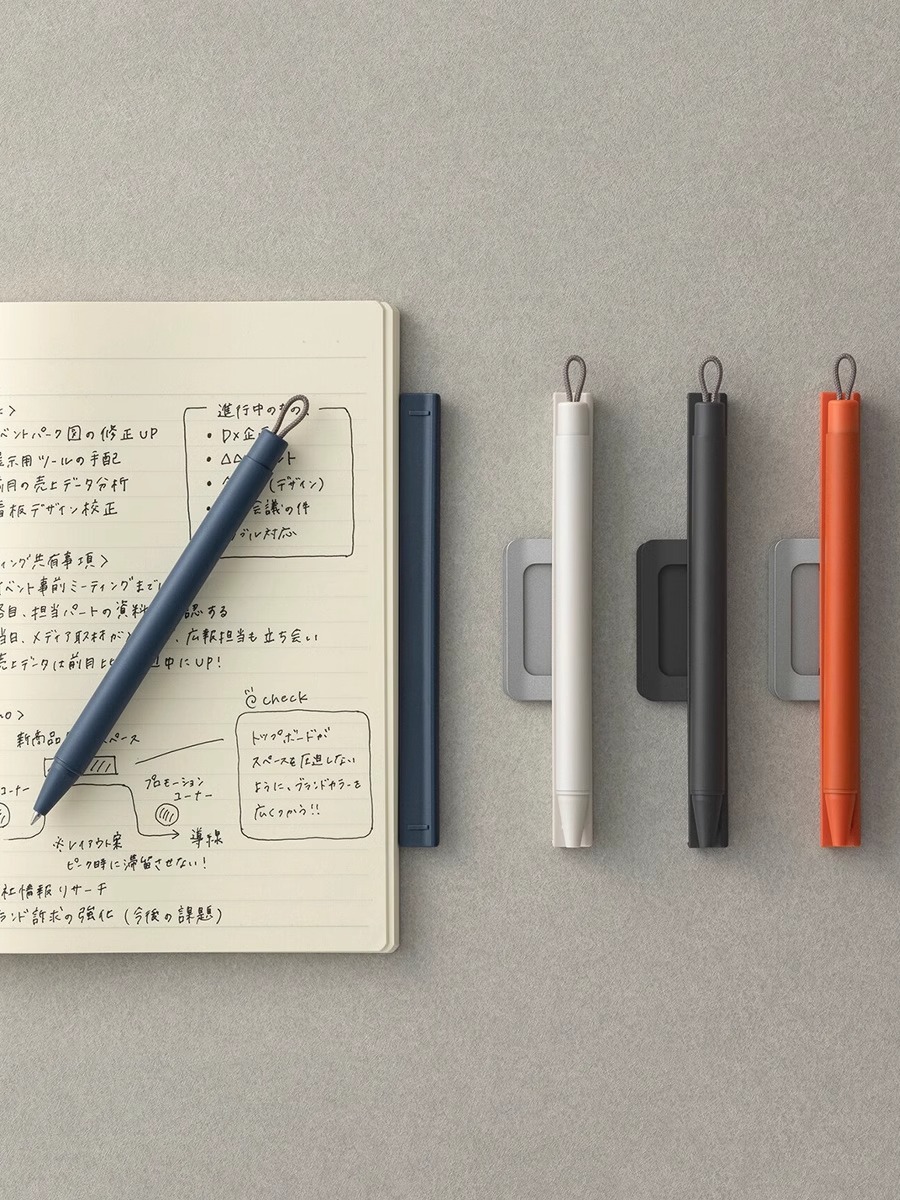 ベントパーク図の修正UP
展示用ツールの手配
前月の売上データ分析
看板デザイン校正
進行中の
• Dx企
• △△ ント
• (デザイン)
会議の件
ブル対応
ィング共有事項>
イベント事前ミーティングまでに
各自、担当パートの資料 認する
当日、メディア取材が 、広報担当も立ち会い
売上データは前月比 中にUP!
新商品 スペース
コーナー
プロモーション
コーナー
※レイアウト案
導線
ピーク時に滞留させない!
check
トップボードが
スペースを圧迫しない
ように、ブランドカラーを
広くつかう!!
社情報リサーチ
ランド訴求の強化 (今後の課題)